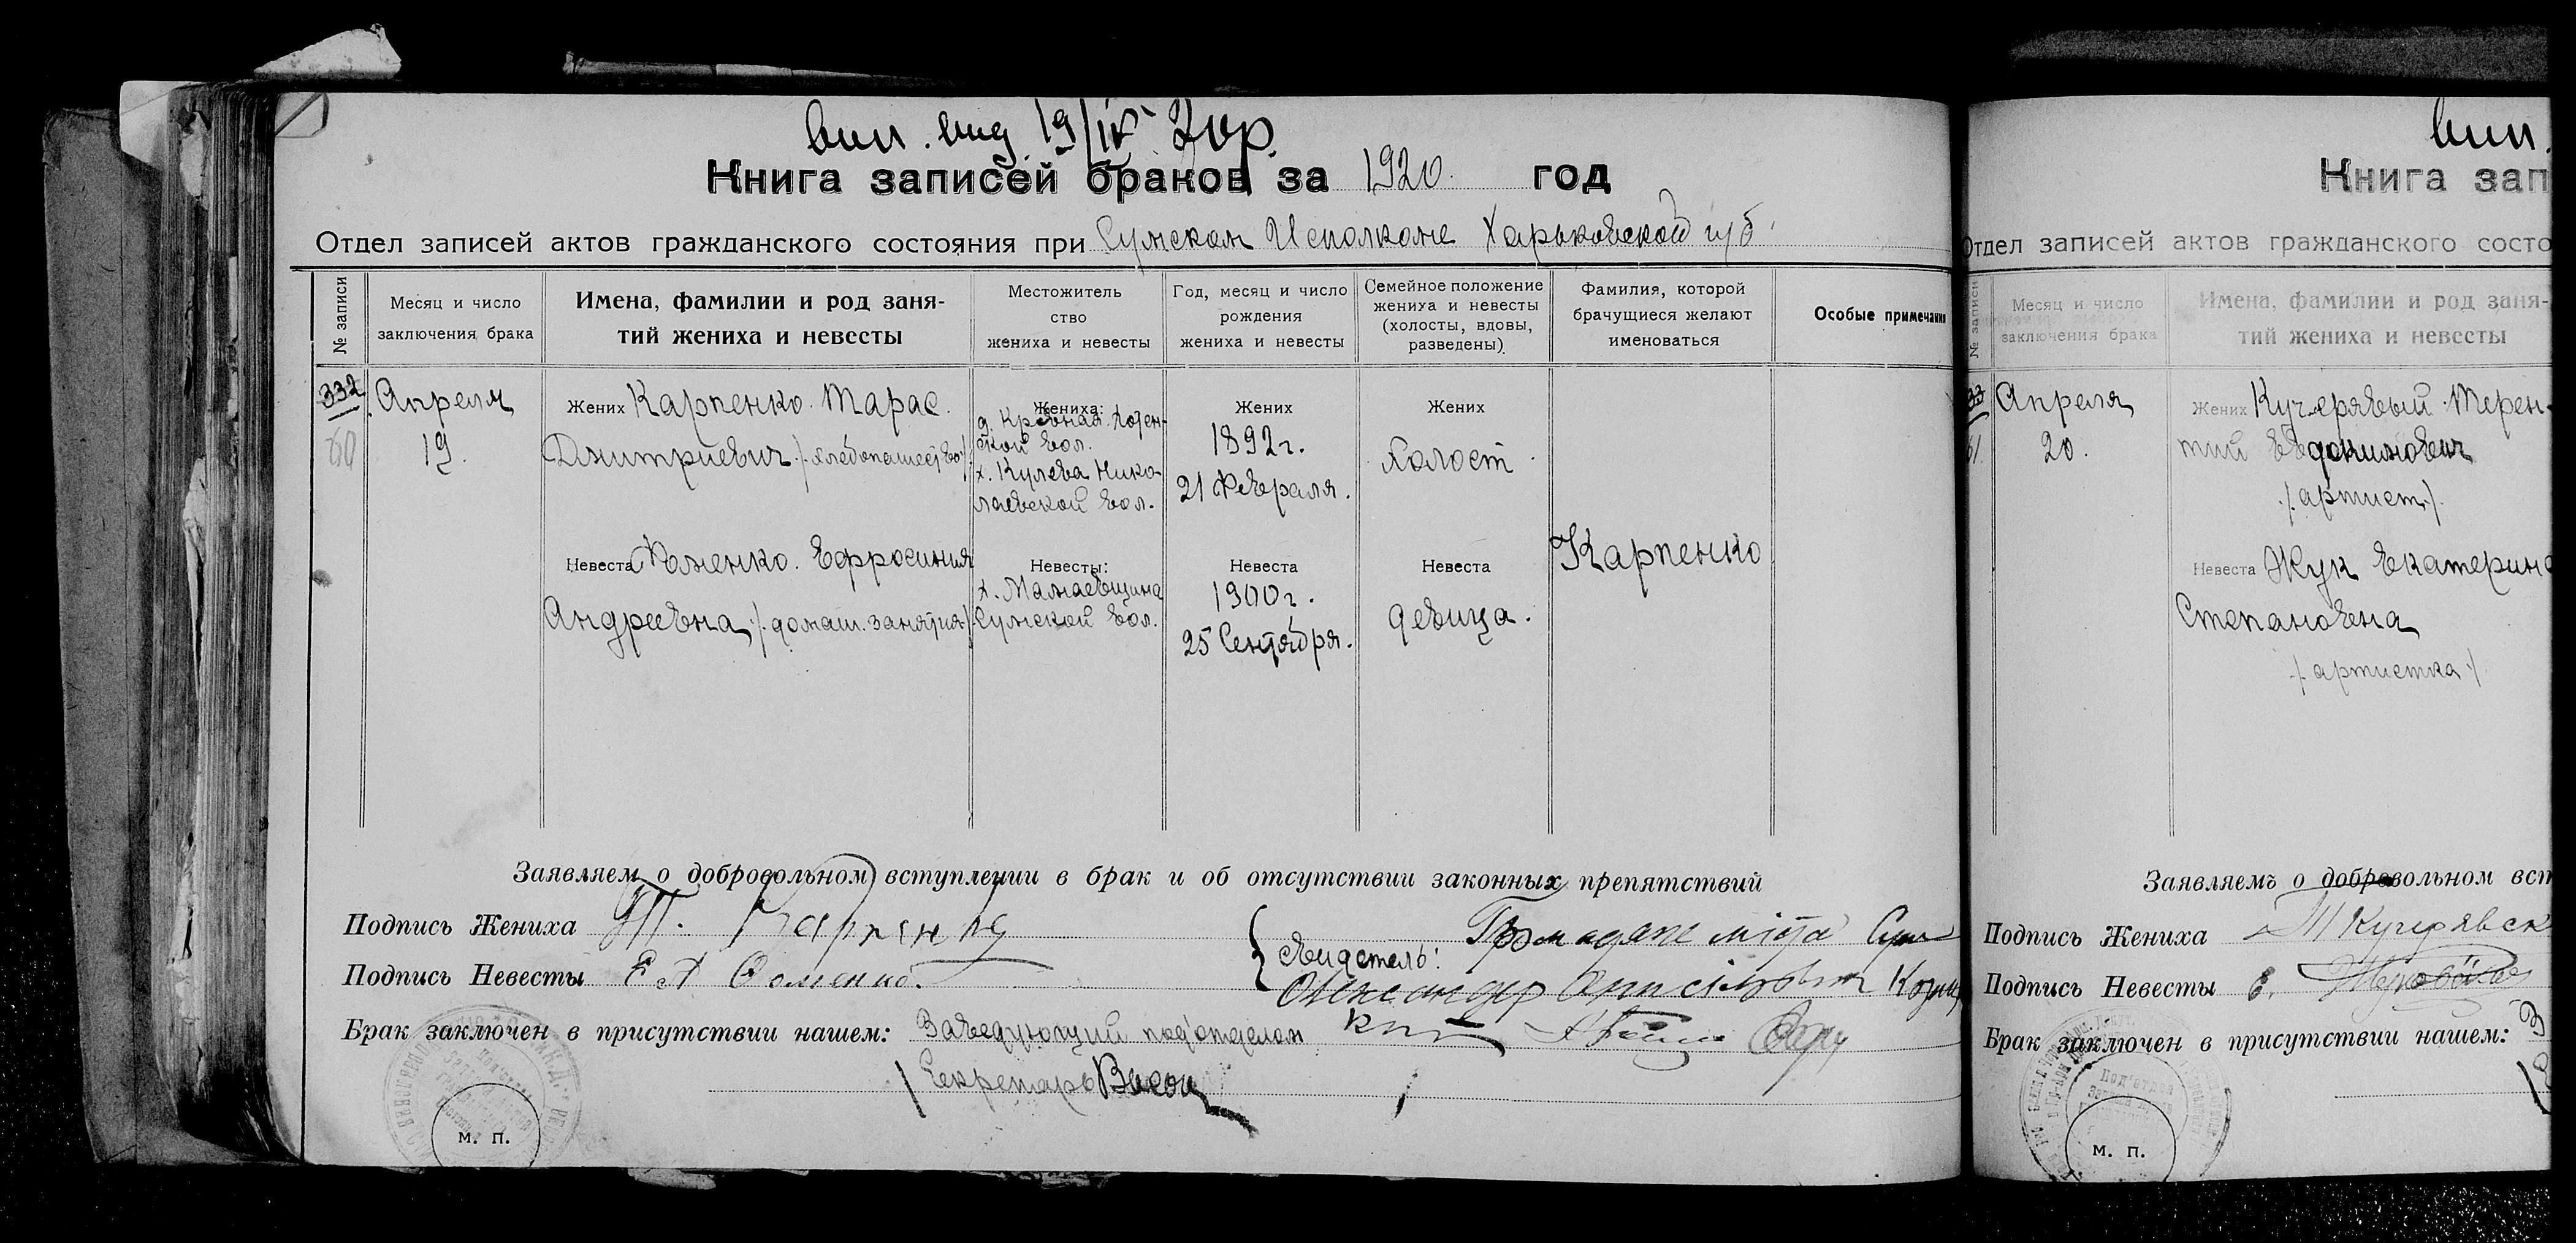 вип. вид. 19/IV 20р.
Книга записей браков за 1920 год
Отдел записей актов гражданского состояния при Сумском Исполкоме Харьковской губ.
№ записи
Месяц и число
заключения брака
Имена, фамилии и род заня-
тий жениха и невесты
Местожитель
ство
жениха и невесты
Год, месяц и число
рождения
жениха и невесты
Семейное положение
жениха и невесты
(холосты, вдовы,
разведены)
Фамилия, которой
брачущиеся желают
именоваться
Особые примечания
332
60
Апреля
19.
Жених Карпенко Тарас
Дмитриевич /хлебопашество/
Жениха:
ской вол.
х. Кулева Нико-
лаевской вол.
Жених
1892 г.
21 Февраля.
Жених
Холост
Невеста Фоменко Ефросиния
Андреевна /домаш. занятия/
Невесты:
х.
Сумской вол.
Невеста
1900 г.
25 Сентября.
Невеста
девица.
Карпенко
Заявляем о добровольном вступлении в брак и об отсутствии законных препятствий
Подпись Жениха Т. Карпенко
Подпись Невесты Е А Фоменко.
Свидетель: Громадяне міста Сум
Олександр
Брак заключен в присутствии нашем: Заведующий подотделом
Секретарь
м. п.
вип.
Книга зап
Отдел записей актов гражданского состо
№ записи
Месяц и число
заключения брака
Имена, фамилии и род заня-
тий жениха и невесты
33
61.
Апреля
20.
Жених Кучерявый Терен-
тий Евдокимович
/артист/
Невеста Жук Екатерина
Степановна
/артистка/
Заявляемъ о добровольном вст
Подпись Жениха Т Кучерявск
Подпись Невесты Е.
Брак заключен в присутствии нашем: З
м. п.